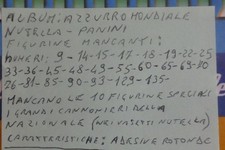 ALBUM: AZZURRO MONDIALE
NUTELLA - PANINI
FIGURINE MANCANTI:
NUMERI: 9-14-15-17-18-19-22-25
33-36-45-48-49-55-60-65-69-70
76-81-85-90-93-129-135-
MANCANO LE 10 FIGURINE SPECIALI
I GRANDI CANNONIERI DELLA
NAZIONALE (NEI VASETTI NUTELLA)
CARATTERISTICHE: ADESIVE ROTONDE